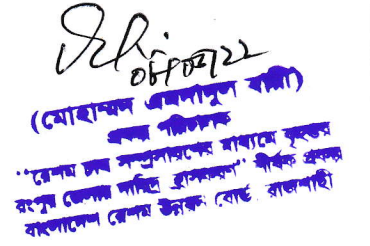 ০৮/০২/২২
(মোহাম্মদ এমদাদুল বারী)
প্রকল্প পরিচালক
"রেশম চাষ সম্প্রসারণের মাধ্যমে বৃহত্তর
রংপুর জেলার দারিদ্র হ্রাসকরণ" শীর্ষক প্রকল্প
বাংলাদেশ রেশম উন্নয়ন বোর্ড রাজশাহী